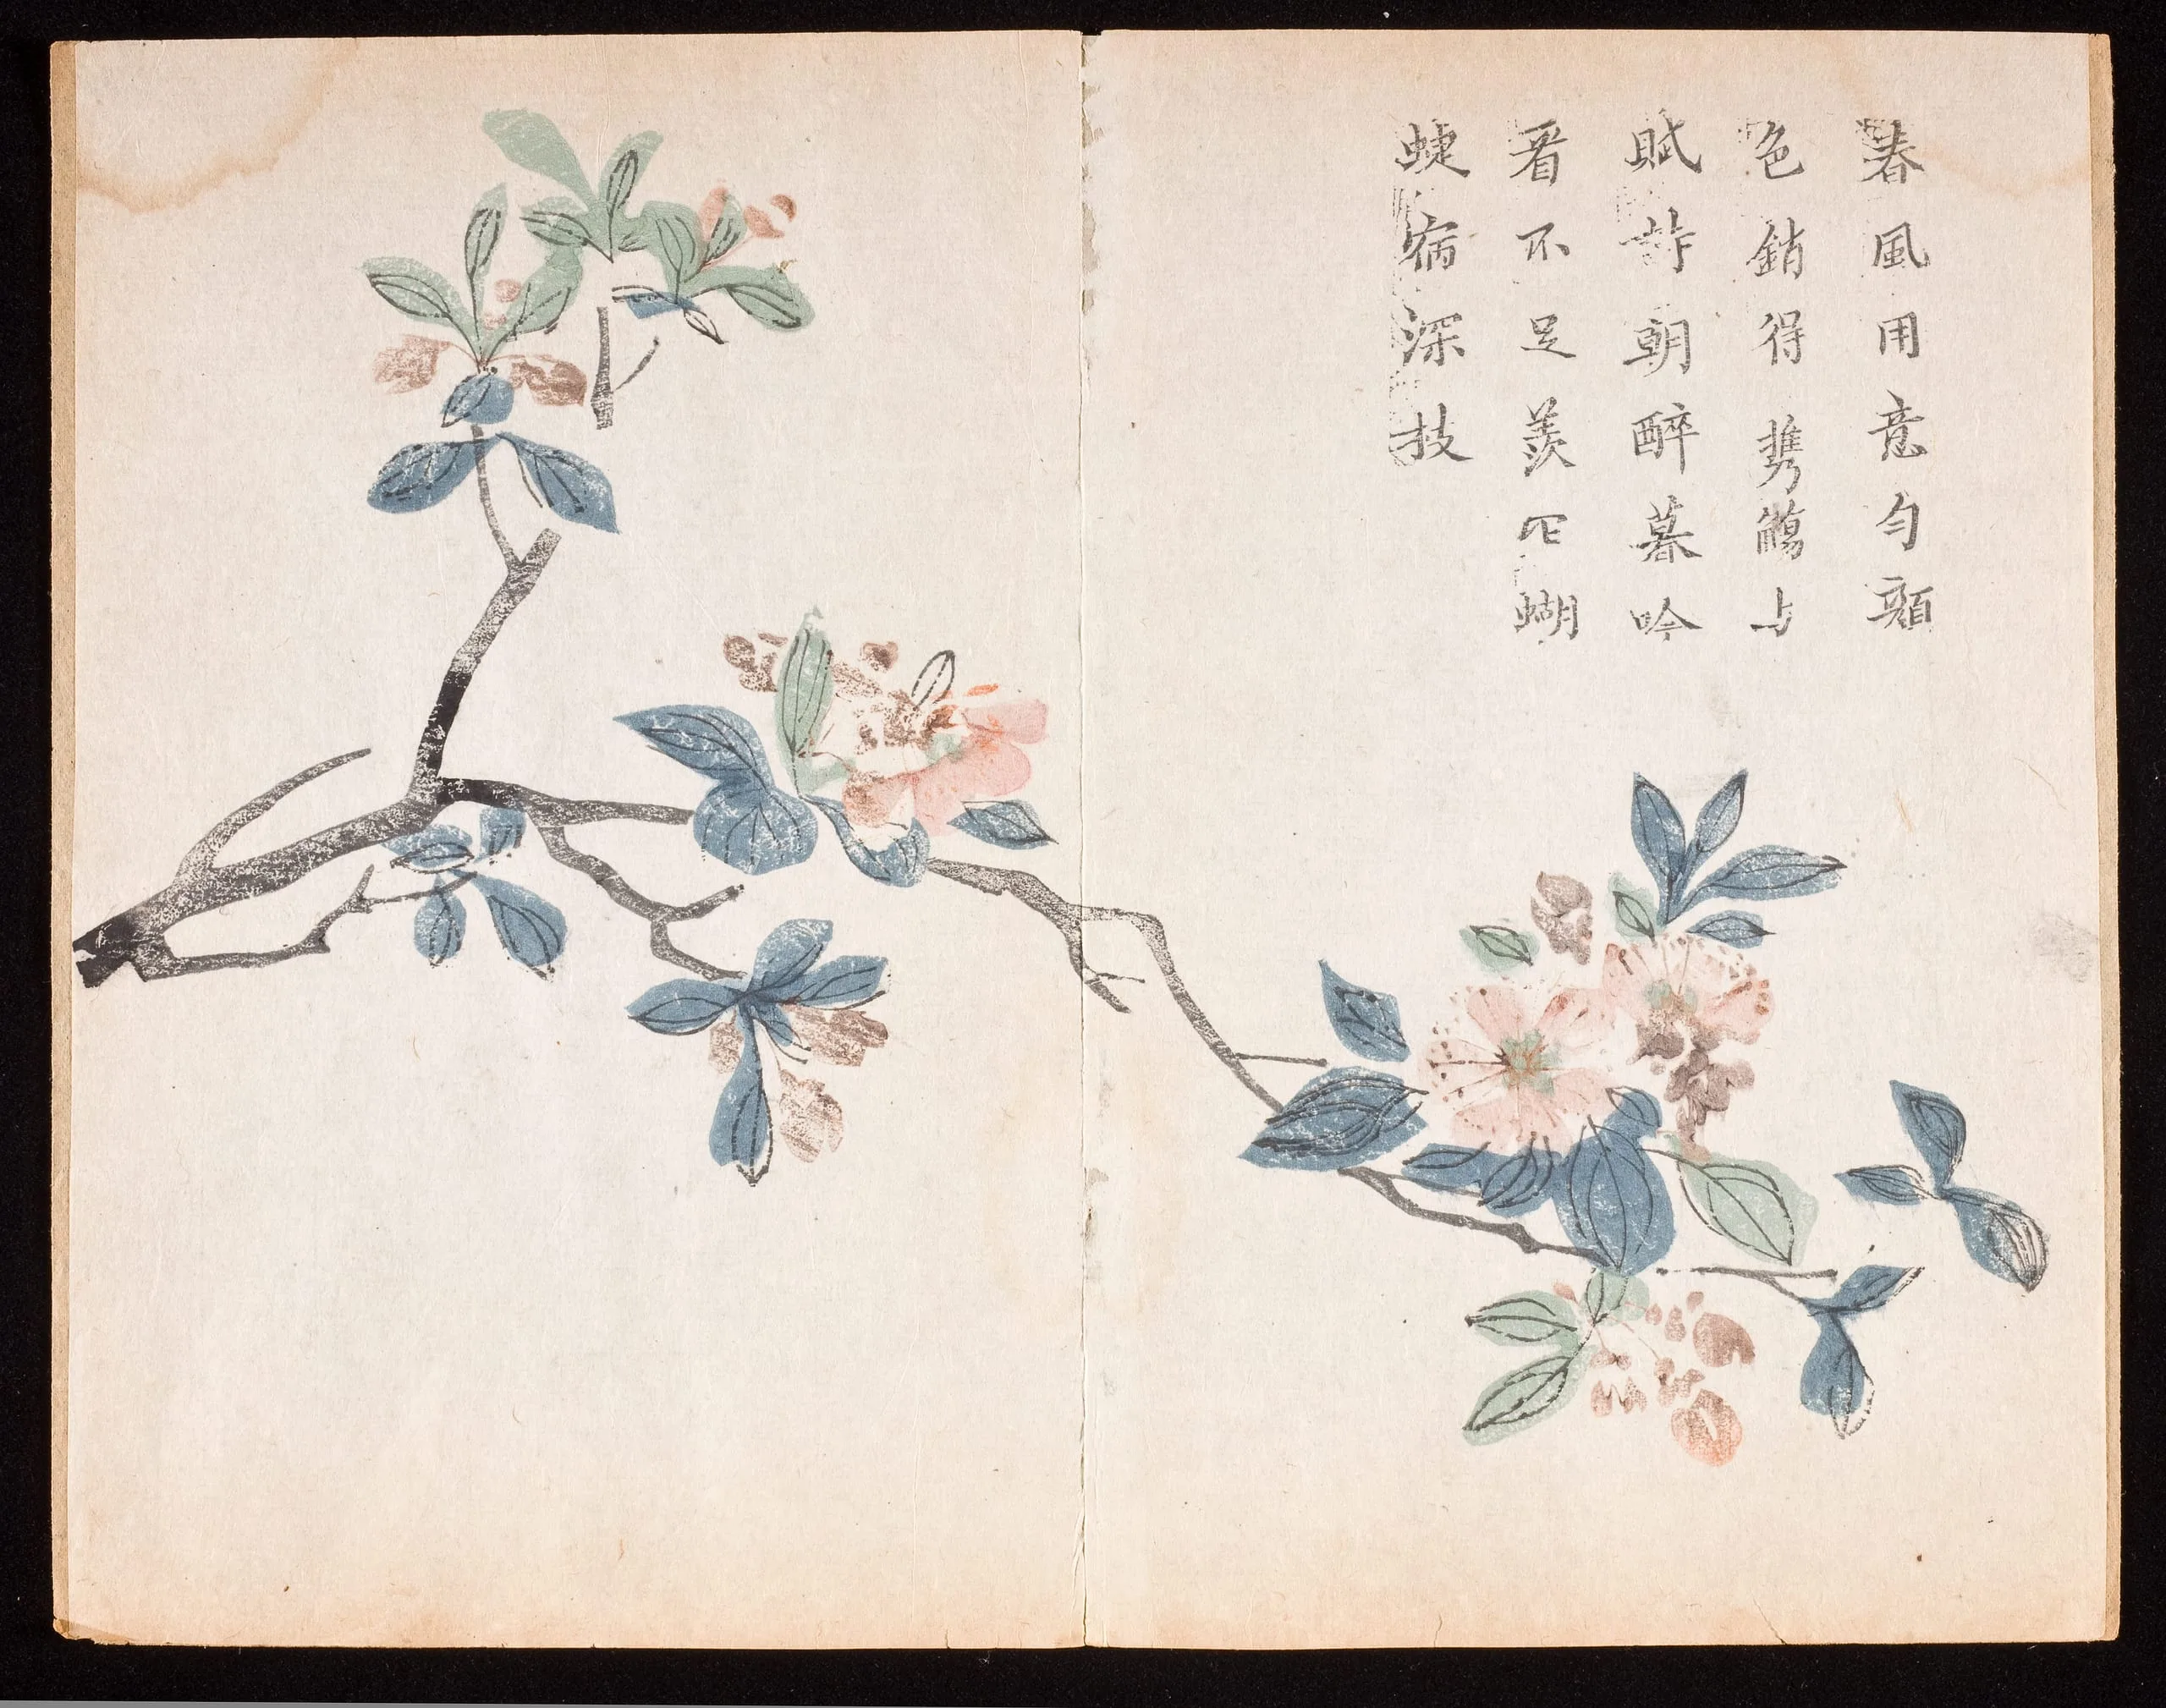 春風用意勻顔
色銷得携觴与
賦詩朝醉暮吟
看不足羨它蝴
蜨宿深技